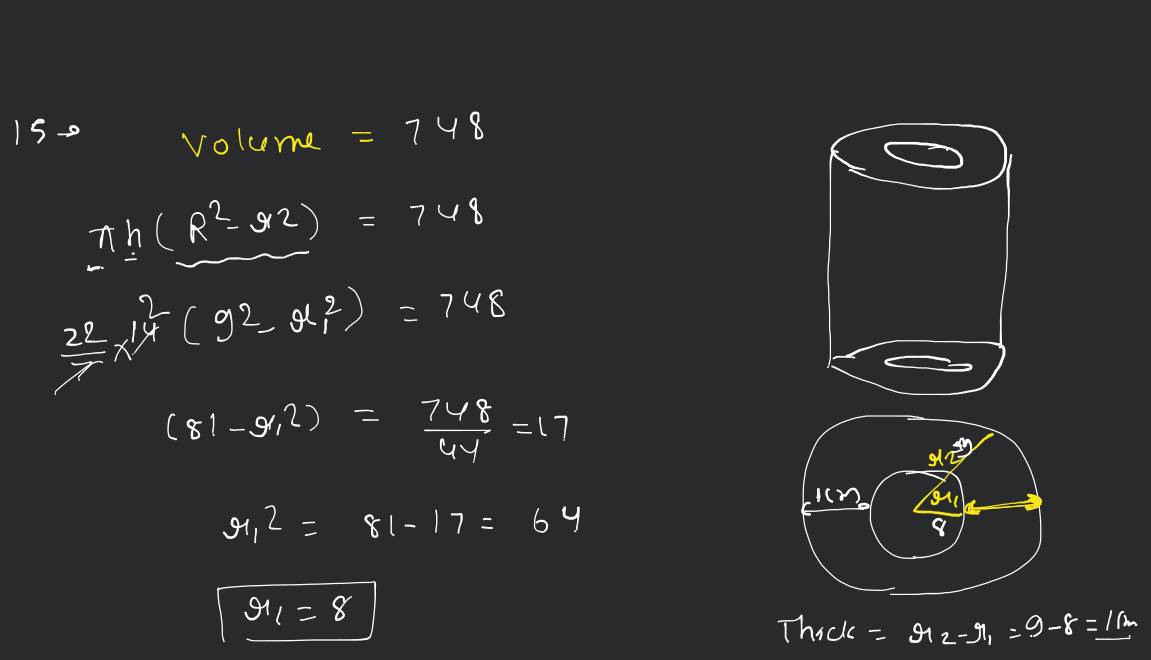 15→ Volume = 748
πh(R²-r2) = 748
22/7 × 14 2 (92-r₁²) = 748
(81-r₁2) = 748/44 = 17
r₁2 = 81-17 = 64
r₁ = 8
r2
1cm
r₁
8
Thick = r2-r₁ = 9-8 = 1cm